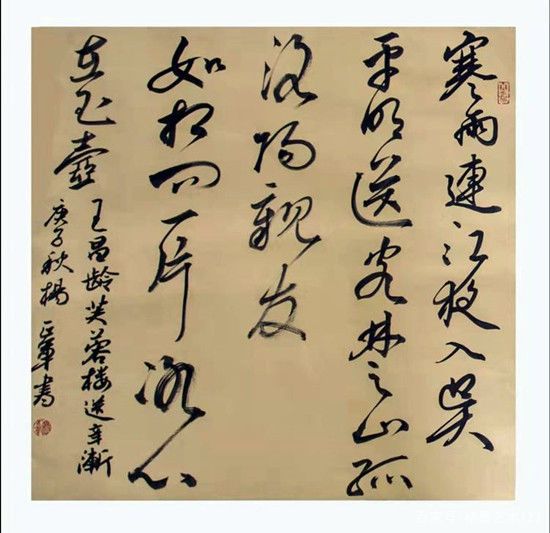 寒雨連江夜入吳
平明送客楚山孤
洛陽親友
如相问一片冰心
在玉壺
王昌龄芙蓉楼送辛漸
庚子秋楊書